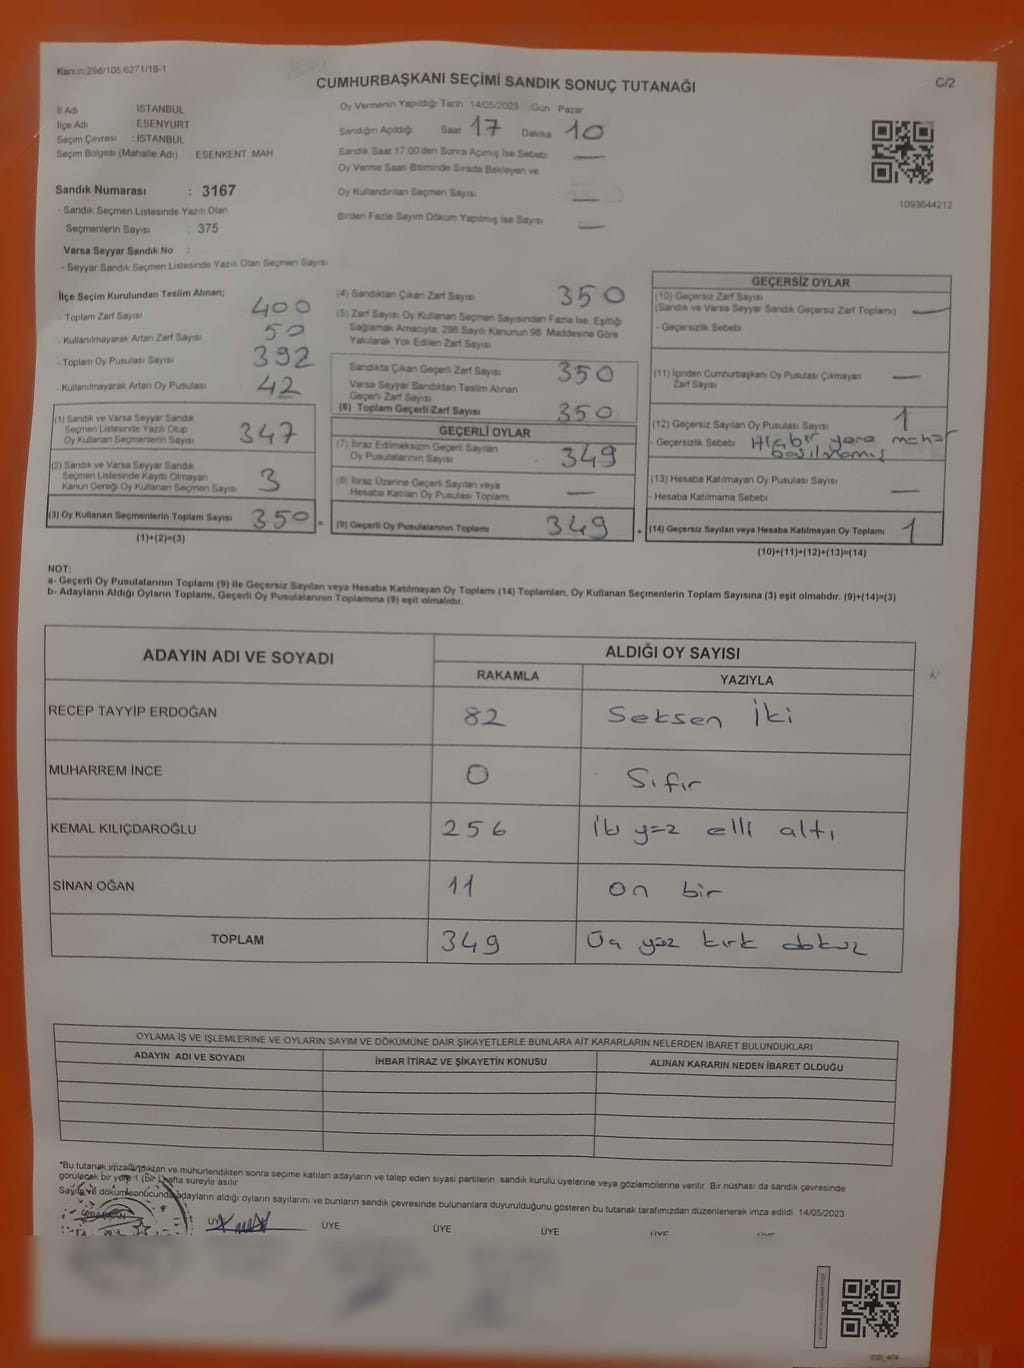 Kanun:298/105,6271/18-1
CUMHURBAŞKANI SEÇİMİ SANDIK SONUÇ TUTANAĞI
C/2
İl Adı İSTANBUL
İlçe Adı ESENYURT
Seçim Çevresi : İSTANBUL
Seçim Bölgesi (Mahalle Adı) ESENKENT MAH
Sandık Numarası : 3167
- Sandık Seçmen Listesinde Yazılı Olan
Seçmenlerin Sayısı : 375
Varsa Seyyar Sandık No :
- Seyyar Sandık Seçmen Listesinde Yazılı Olan Seçmen Sayısı
Oy Vermenin Yapıldığı Tarih 14/05/2023 Gün Pazar
Sandığın Açıldığı Saat 17 Dakika 10
Sandık Saat 17.00'den Sonra Açılmış İse Sebebi —
Oy Verme Saati Bitiminde Sırada Bekleyen ve
Oy Kullandırılan Seçmen Sayısı —
Birden Fazla Sayım Döküm Yapılmış İse Sayısı —
1093644212
İlçe Seçim Kurulundan Teslim Alınan;
- Toplam Zarf Sayısı 400
- Kullanılmayarak Artan Zarf Sayısı 50
- Toplam Oy Pusulası Sayısı 392
- Kullanılmayarak Artan Oy Pusulası 42
(1) Sandık ve Varsa Seyyar Sandık
Seçmen Listesinde Yazılı Olup
Oy Kullanan Seçmenlerin Sayısı 347
(2) Sandık ve Varsa Seyyar Sandık
Seçmen Listesinde Kayıtlı Olmayan
Kanun Gereği Oy Kullanan Seçmen Sayısı 3
(3) Oy Kullanan Seçmenlerin Toplam Sayısı 350 =
(1)+(2)=(3)
(4) Sandıktan Çıkan Zarf Sayısı 350
(5) Zarf Sayısı Oy Kullanan Seçmen Sayısından Fazla İse, Eşitliği
Sağlamak Amacıyla, 298 Sayılı Kanunun 98. Maddesine Göre
Yakılarak Yok Edilen Zarf Sayısı
Sandıkta Çıkan Geçerli Zarf Sayısı 350
Varsa Seyyar Sandıktan Teslim Alınan
Geçerli Zarf Sayısı
(6) Toplam Geçerli Zarf Sayısı 350
GEÇERLİ OYLAR
(7) İtiraz Edilmeksizin Geçerli Sayılan
Oy Pusulalarının Sayısı 349
(8) İtiraz Üzerine Geçerli Sayılan veya
Hesaba Katılan Oy Pusulası Toplamı —
(9) Geçerli Oy Pusulalarının Toplamı 349 +
GEÇERSİZ OYLAR
(10) Geçersiz Zarf Sayısı
(Sandık ve Varsa Seyyar Sandık Geçersiz Zarf Toplamı) —
- Geçersizlik Sebebi
(11) İçinden Cumhurbaşkanı Oy Pusulası Çıkmayan
Zarf Sayısı —
(12) Geçersiz Sayılan Oy Pusulası Sayısı 1
- Geçersizlik Sebebi Hiçbir yere mühür
basılmamış
(13) Hesaba Katılmayan Oy Pusulası Sayısı —
- Hesaba Katılmama Sebebi
(14) Geçersiz Sayılan veya Hesaba Katılmayan Oy Toplamı 1
(10)+(11)+(12)+(13)=(14)
NOT:
a- Geçerli Oy Pusulalarının Toplamı (9) ile Geçersiz Sayılan veya Hesaba Katılmayan Oy Toplamı (14) Toplamları, Oy Kullanan Seçmenlerin Toplam Sayısına (3) eşit olmalıdır. (9)+(14)=(3)
b- Adayların Aldığı Oyların Toplamı, Geçerli Oy Pusulalarının Toplamına (9) eşit olmalıdır.
ADAYIN ADI VE SOYADI
ALDIĞI OY SAYISI
RAKAMLA YAZIYLA
RECEP TAYYİP ERDOĞAN 82 Seksen iki
MUHARREM İNCE 0 Sıfır
KEMAL KILIÇDAROĞLU 256 iki yüz elli altı
SİNAN OĞAN 11 on bir
TOPLAM 349 Üç yüz kırk dokuz
OYLAMA İŞ VE İŞLEMLERİNE VE OYLARIN SAYIM VE DÖKÜMÜNE DAİR ŞİKAYETLERLE BUNLARA AİT KARARLARIN NELERDEN İBARET BULUNDUKLARI
ADAYIN ADI VE SOYADI İHBAR İTİRAZ VE ŞİKAYETİN KONUSU ALINAN KARARIN NEDEN İBARET OLDUĞU
*Bu tutanak imzalandıktan ve mühürlendikten sonra seçime katılan adayların ve talep eden siyasi partilerin sandık kurulu üyelerine veya gözlemcilerine verilir. Bir nüshası da sandık çevresinde
görülecek bir yere 1 (bir) hafta süreyle asılır.
Sayım ve döküm sonucunda adayların aldığı oyların sayılarını ve bunların sandık çevresinde bulunanlara duyurulduğunu gösteren bu tutanak tarafımızdan düzenlenerek imza edildi. 14/05/2023
ÜYE ÜYE ÜYE ÜYE ÜYE